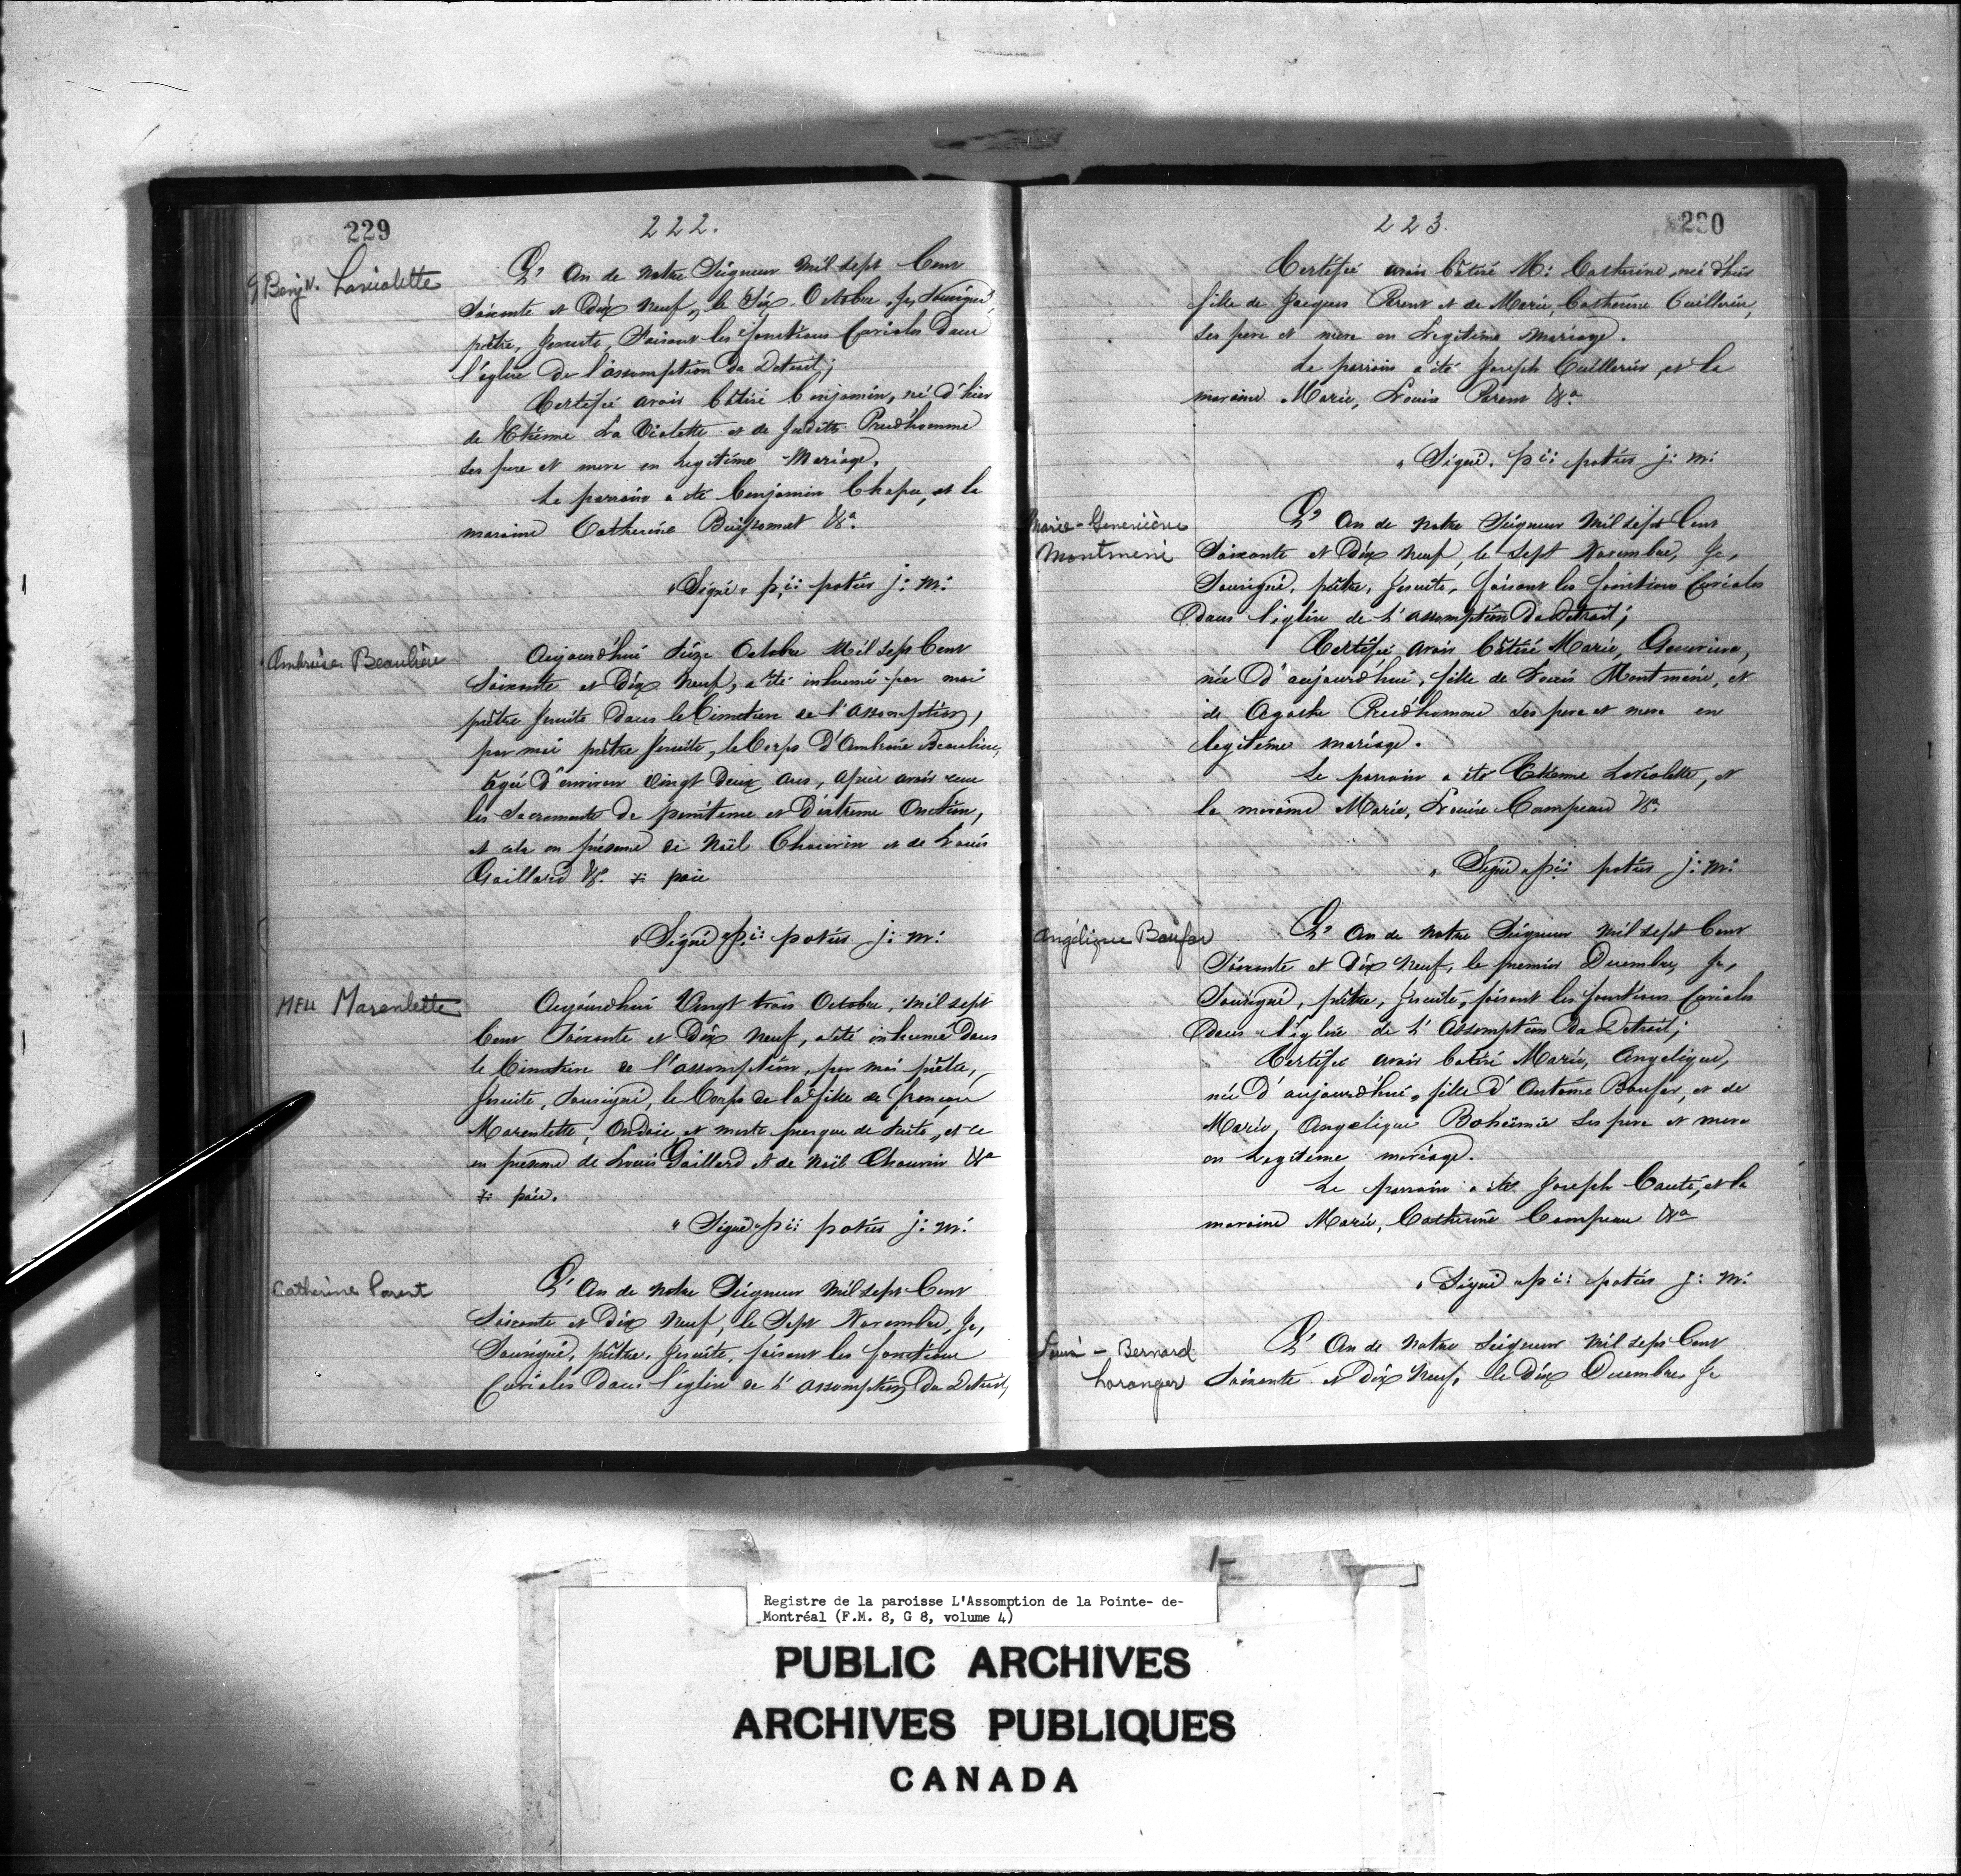 229
222.
Benjn. Laviolette
L' An de notre Seigneur Mil sept Cent
Soixante et Dix neuf, le Six Octobre, Je, Sousigné,
prêtre, Jesuite, Faisant les fonctions Curiales dans
l'église de l'assomption du Detroit;
Certifié avoir bâtisé benjamin, né d'hier
de Etienne La Violette et de Judith Prud'homme
ses pere et mere en legitime Mariage.
Le parrain a été benjamin Chapu, et la
maraine Catherine Buissonnet &a.
"Signé" p: i: potier j: m:
Ambroise Beauliere
Aujourd'hui Seize Octobre Mil sept Cent
Soixante et Dix Neuf, a été inhumé par moi
prêtre Jesuite dans le Cimetiere de l'Assomption,
par moi prêtre Jesuite, le Corps d'Ambroise Beauliere,
agé d'environ vingt deux ans, après avoir reçu
les Sacrements de penitence et d'extreme Onction,
et cela en présence de Noël Chauvin et de Louis
Gaillard &c. x paie
"Signé" p: i: potier j: m:
Meu Marenlette
Aujourd'hui Vingt trois Octobre, mil sept
Cent Soixante et Dix Neuf, a été inhumé dans
le Cimetiere de l'assomption, par moi prêtre,
Jesuite, Sousigné, le Corps de la fille de françois
Marentette, Ondoiée et morte presque de suite, et ce
en présence de Louis Gaillard et de Noël Chauvin &a
x paie.
"Signé" p: i: potier j: m:
Catherine Parent
L' An de notre Seigneur Mil sept Cent
Soixante et Dix Neuf, le Sept Novembre, Je,
Sousigné, prêtre, Jesuite, faisant les fonctions
Curiales dans l'église de l'assomption du Detroit,
223.
230
Certifié avoir bâtisé M: Catherine, née d'hier
fille de Jacques Parent et de Marie, Catherine Cuillerier,
ses pere et mere en Legitime mariage.
Le parrain a été Joseph Cuillerier, et la
maraine Marie, Louise Parent &a.
"Signé. p: i: potier j: m:
Marie-Geneviève
Montmeni
L' An de notre Seigneur Mil sept Cent
Soixante et Dix Neuf, le Sept Novembre, Je,
Sousigné, prêtre, Jesuite, faisant les fonctions Curiales
dans l'église de L'assomption du Detroit;
Certifié avoir bâtisé Marie, Genevieve,
née d'aujourd'hui, fille de Louis Montméni, et
de Agathe Prud'homme ses pere et mere en
legitime mariage.
Le parrain a été Etienne Laviolette, et
la maraine Marie, Louise Campeau &a.
"Signé" p: i: potier j: m:
Angélique Baufor
L' An de notre Seigneur Mil sept Cent
Soixante et Dix Neuf, le premier Decembre, Je,
Sousigné, prêtre, Jesuite, faisant les fonctions Curiales
dans l'église de L'Assomption du Detroit;
Certifié avoir batisé Marie, Angelique,
née d'aujourd'hui, fille d'Antoine Baufor, et de
Marie, Angelique Bohëmié ses pere et mere
en Legitime mariage.
Le parrain a été Joseph Cauté, et la
maraine Marie, Catherine Campeau &a
"Signé" p: i: potier j: m:
Louis - Bernard
Loranger
L' An de notre Seigneur Mil sept Cent
Soixante et Dix Neuf, le Dix Decembre Je
1-
Registre de la paroisse L'Assomption de la Pointe- de-
Montréal (F.M. 8, G 8, volume 4)
PUBLIC ARCHIVES
ARCHIVES PUBLIQUES
CANADA